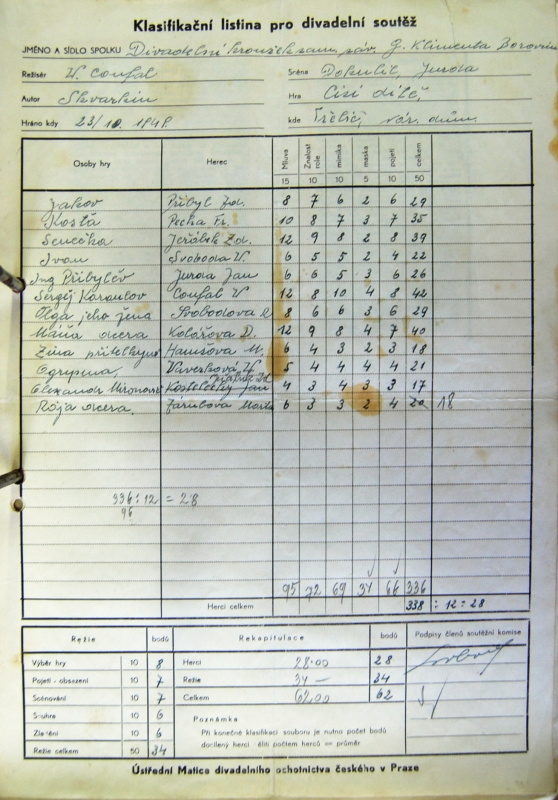 Klasifikační listina pro divadelní soutěž
JMÉNO A SÍDLO SPOLKU Divadelní kroužek sam. správ. G. Klimenta Borovina
Režisér V. Coufal
Scéna Dokulil, Jurda
Autor Skvarkin
Hra Cizí dítě
Hráno kdy 23/10. 1949.
kde Třebíč, nár. dům.
Osoby hry Herec Mluva Znalost role mimika maska pojetí celkem
15 10 10 5 10 50
Jakov Přibyl Zd. 8 7 6 2 6 29
Kosťa Pecha Fr. 10 8 7 3 7 35
Senečka Jeřábek Zd. 12 9 8 2 8 39
Ivan Svoboda V. 6 5 5 2 4 22
Ing Přibylěv Jurda Jan 6 6 5 3 6 26
Sergěj Karaulov Coufal V 12 8 10 4 8 42
Olga jeho žena Svobodova 8 6 6 3 6 29
Máňa dcera Kolářova D. 12 9 8 4 7 40
Zina přítelkyně Hanušova M. 6 4 3 2 3 18
Agripina, 5 4 4 4 4 21
Alexandr Kostelecký Jan 4 3 4 3 3 17
Rája dcera Zárubova Marta 6 3 3 2 4 20 18
336 : 12 = 28
96
95 72 69 34 66 336
Herci celkem 338 : 12 = 28
Režie bodů Rekapitulace bodů Podpisy členů soutěžní komise
Výběr hry 10 8 Herci 28.00 28
Pojetí - obsazení 10 7 Režie 34 — 34
Scénování 10 7 Celkem 62,00 62
Souhra 10 6
Poznámka
Zladění 10 6
Při konečné klasifikaci souboru je nutno počet bodů
docílený herci děliti počtem herců = průměr
Režie celkem 50 34
Ústřední Matice divadelního ochotnictva českého v Praze